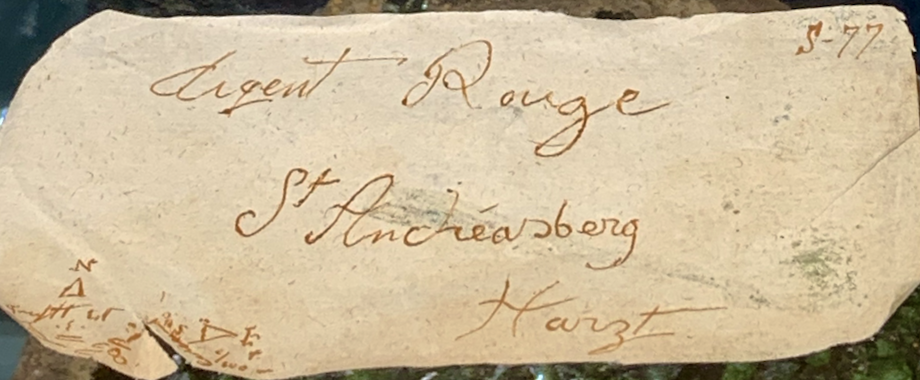 S-77
Argent Rouge
St Andréasberg
Harzt